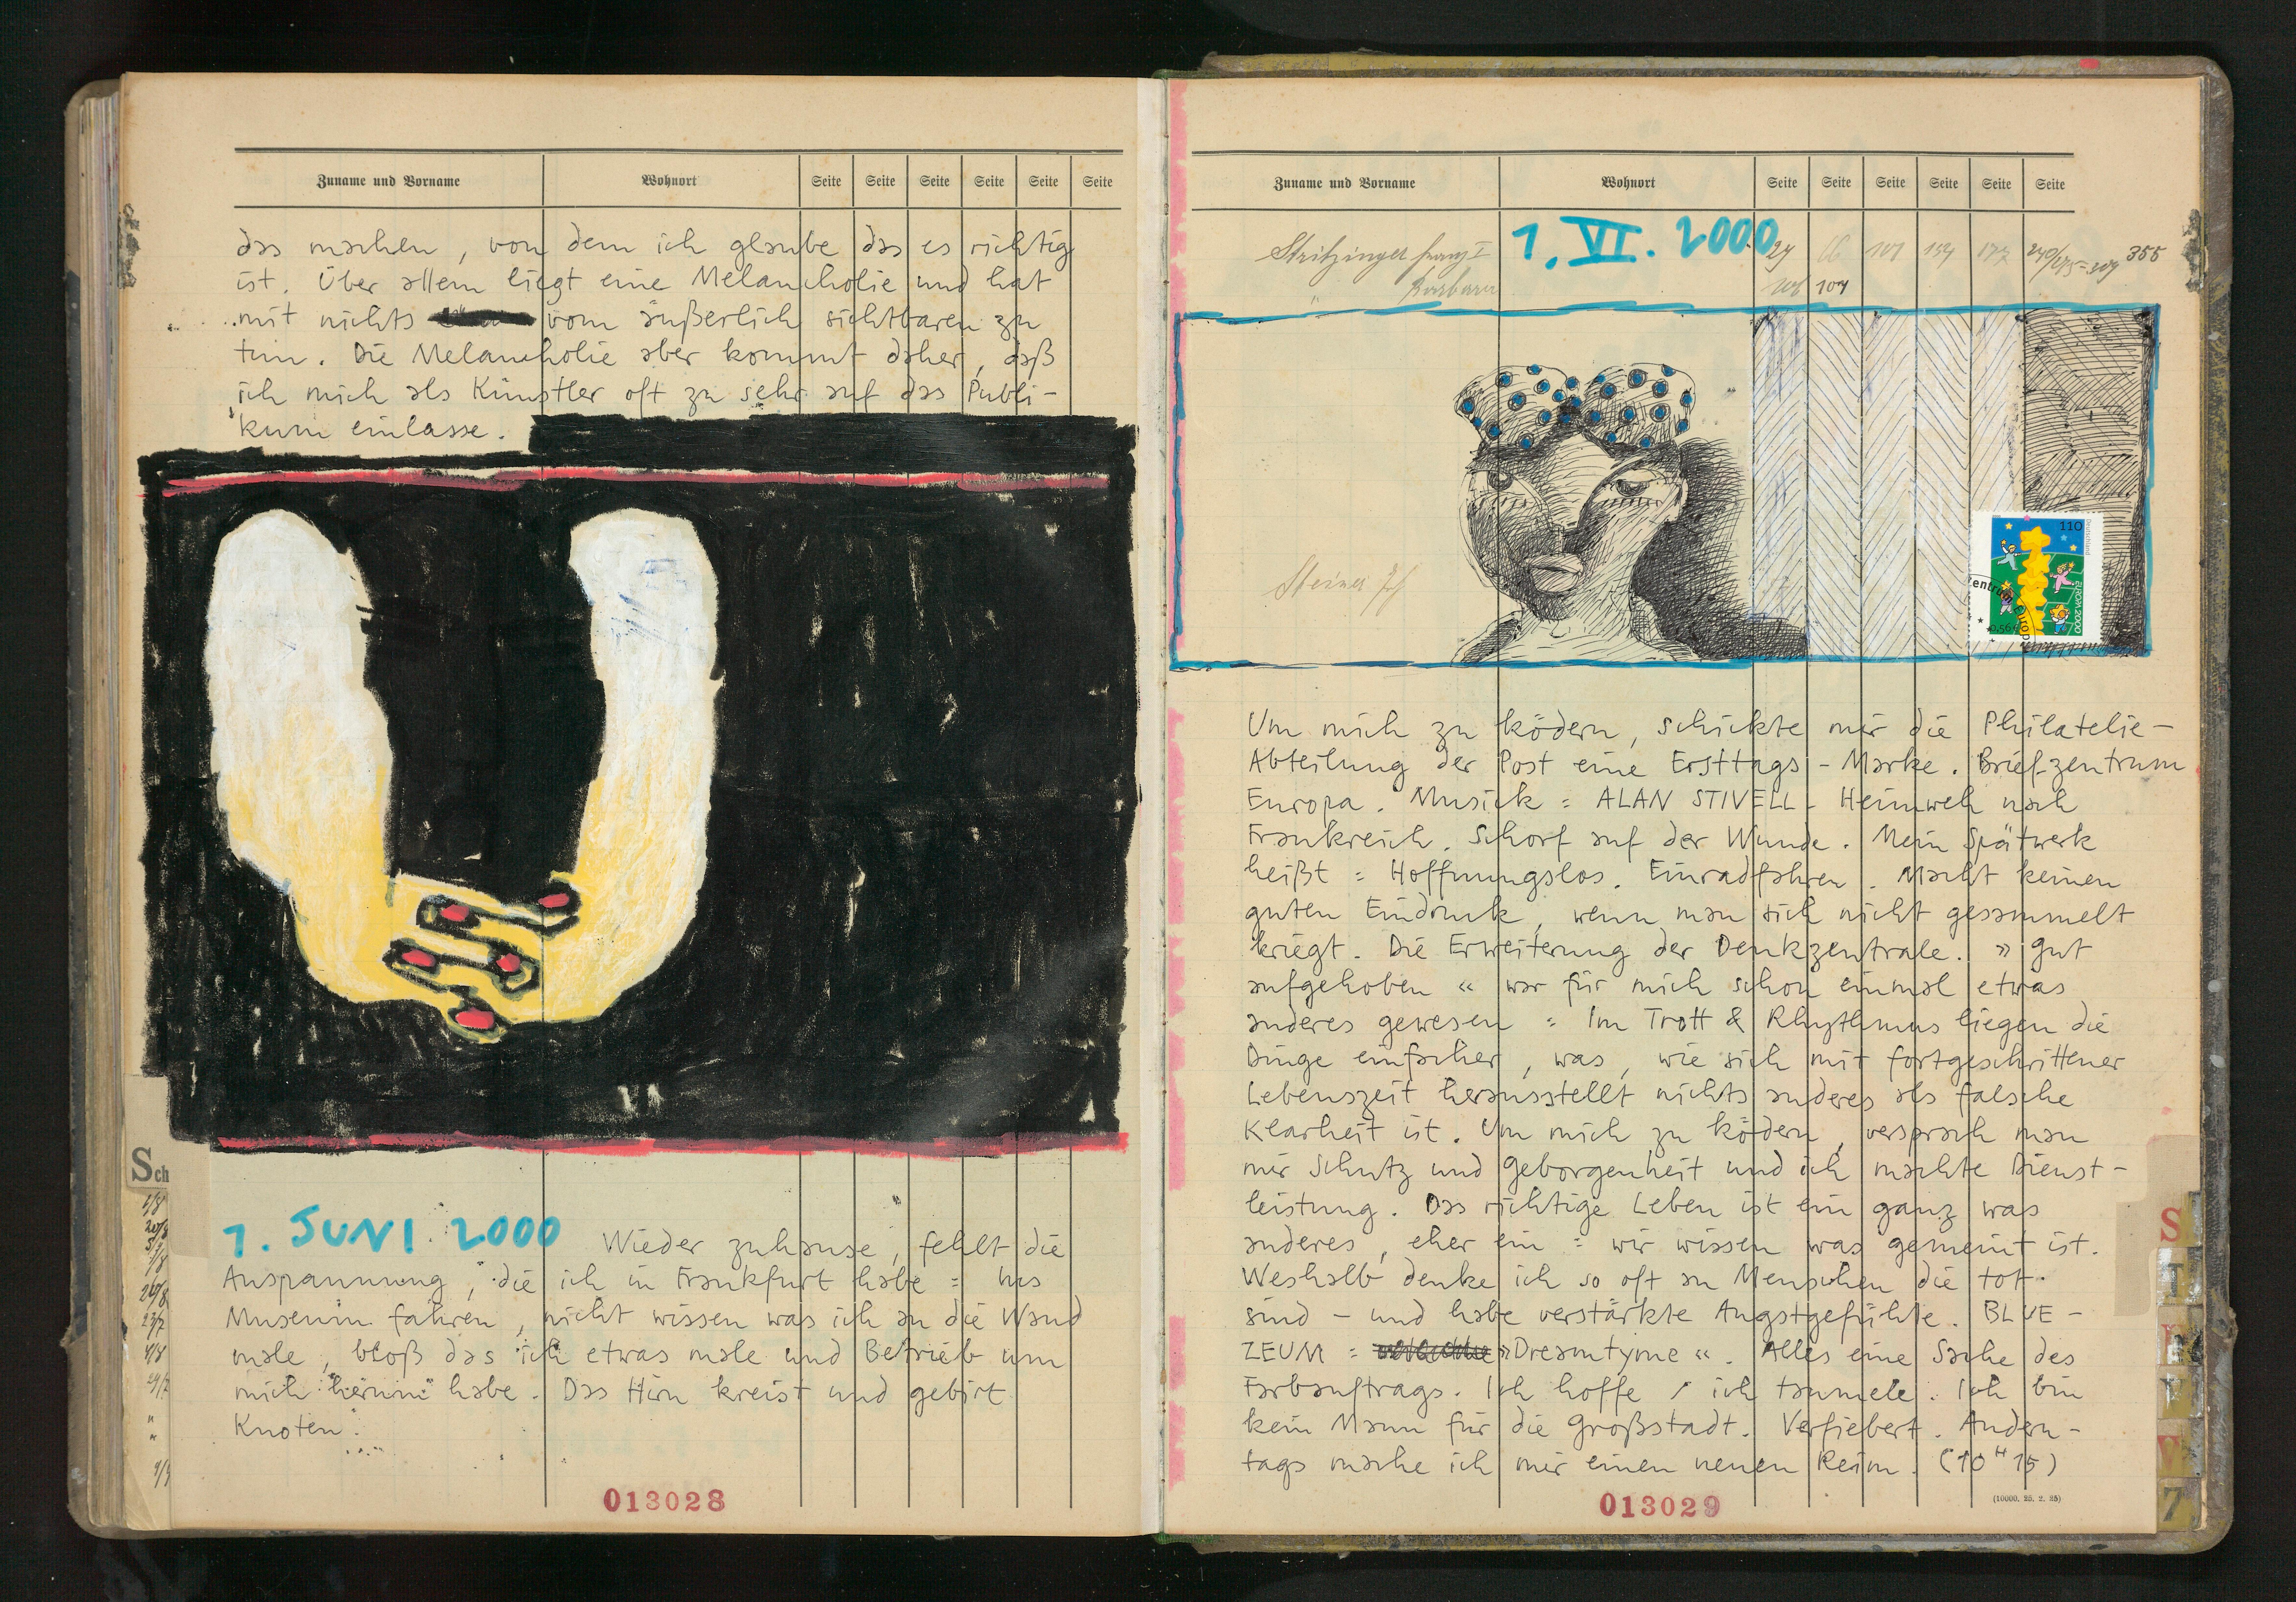 Zuname und Vorname Wohnort Seite Seite Seite Seite Seite Seite
das machen, von dem ich glaube das es richtig
ist. Über allem liegt eine Melancholie und hat
mit nichts vom äußerlich sichtbaren zu
tun. Die Melancholie aber kommt daher, daß
ich mich als Künstler oft zu sehr auf das Publi-
kum einlasse.
Sch
1. JUNI 2000 Wieder zuhause, fehlt die
Anspannung, die ich in Frankfurt habe = Ins
Museum fahren, nicht wissen was ich an die Wand
male, bloß das ich etwas male und Betrieb um
mich herum habe. Das Hirn kreist und gebirt
Knoten.
013028
Zuname und Vorname Wohnort Seite Seite Seite Seite Seite Seite
1. VI. 2000
Stritzinger Franz I 29 66 101 154 177 355
" Barbara 106 107
110
Deutschland
EUROPA 2000
0,56€
Steiner
Um mich zu ködern, schickte mir die Philatelie-
Abteilung der Post eine Ersttags-Marke. Briefzentrum
Europa. Musick = ALAN STIVELL - Heimweh nach
Frankreich. Schorf auf der Wunde. Mein Spätwerk
heißt = Hoffnungslos. Einradfahren. Macht keinen
guten Eindruck, wenn man sich nicht gesammelt
kriegt. Die Erweiterung der Denkzentrale. » Gut
aufgehoben « war für mich schon einmal etwas
anderes gewesen = Im Trott & Rhythmus liegen die
Dinge einfacher, was, wie sich mit fortgeschrittener
Lebenszeit herausstellt nichts anderes als falsche
Klarheit ist. Um mich zu ködern, versprach man
mir Schutz und Geborgenheit und ich machte Dienst-
leistung. Das richtige Leben ist ein ganz was
anderes, eher ein = wir wissen was gemeint ist.
Weshalb denke ich so oft an Menschen die tot
sind - und habe verstärkte Angstgefühle. BLUE-
ZEUM = »Dreamtyme«. Alles eine Sache des
Farbauftrags. Ich hoffe / ich taumele. Ich bin
kein Mann für die Großstadt. Verfiebert. Andern-
tags mache ich mir einen neuen Reim. (10 H 15)
013029
(10000. 25. 2. 25)
S
T